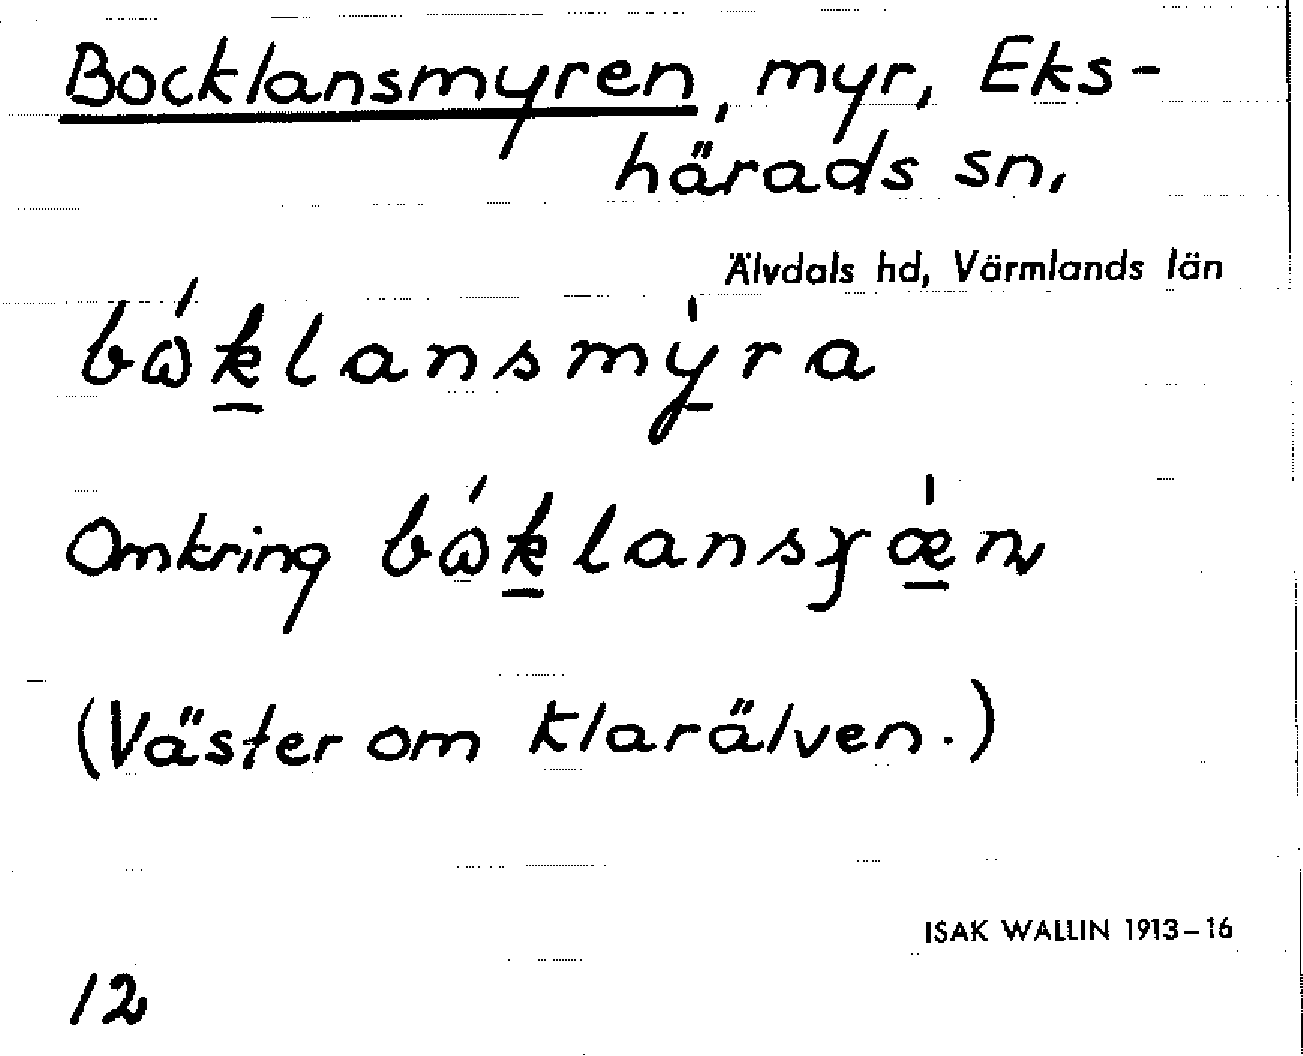 Bocklansmyren, myr, Eks-
härads sn,
Älvdals hd, Värmlands län
bɷ́k̲lansmy̲̍ra
Omkring bɷ́k̲lansɟæ̲̍ɳ
(Väster om Klarälven.)
ISAK WALLIN 1913-16
12